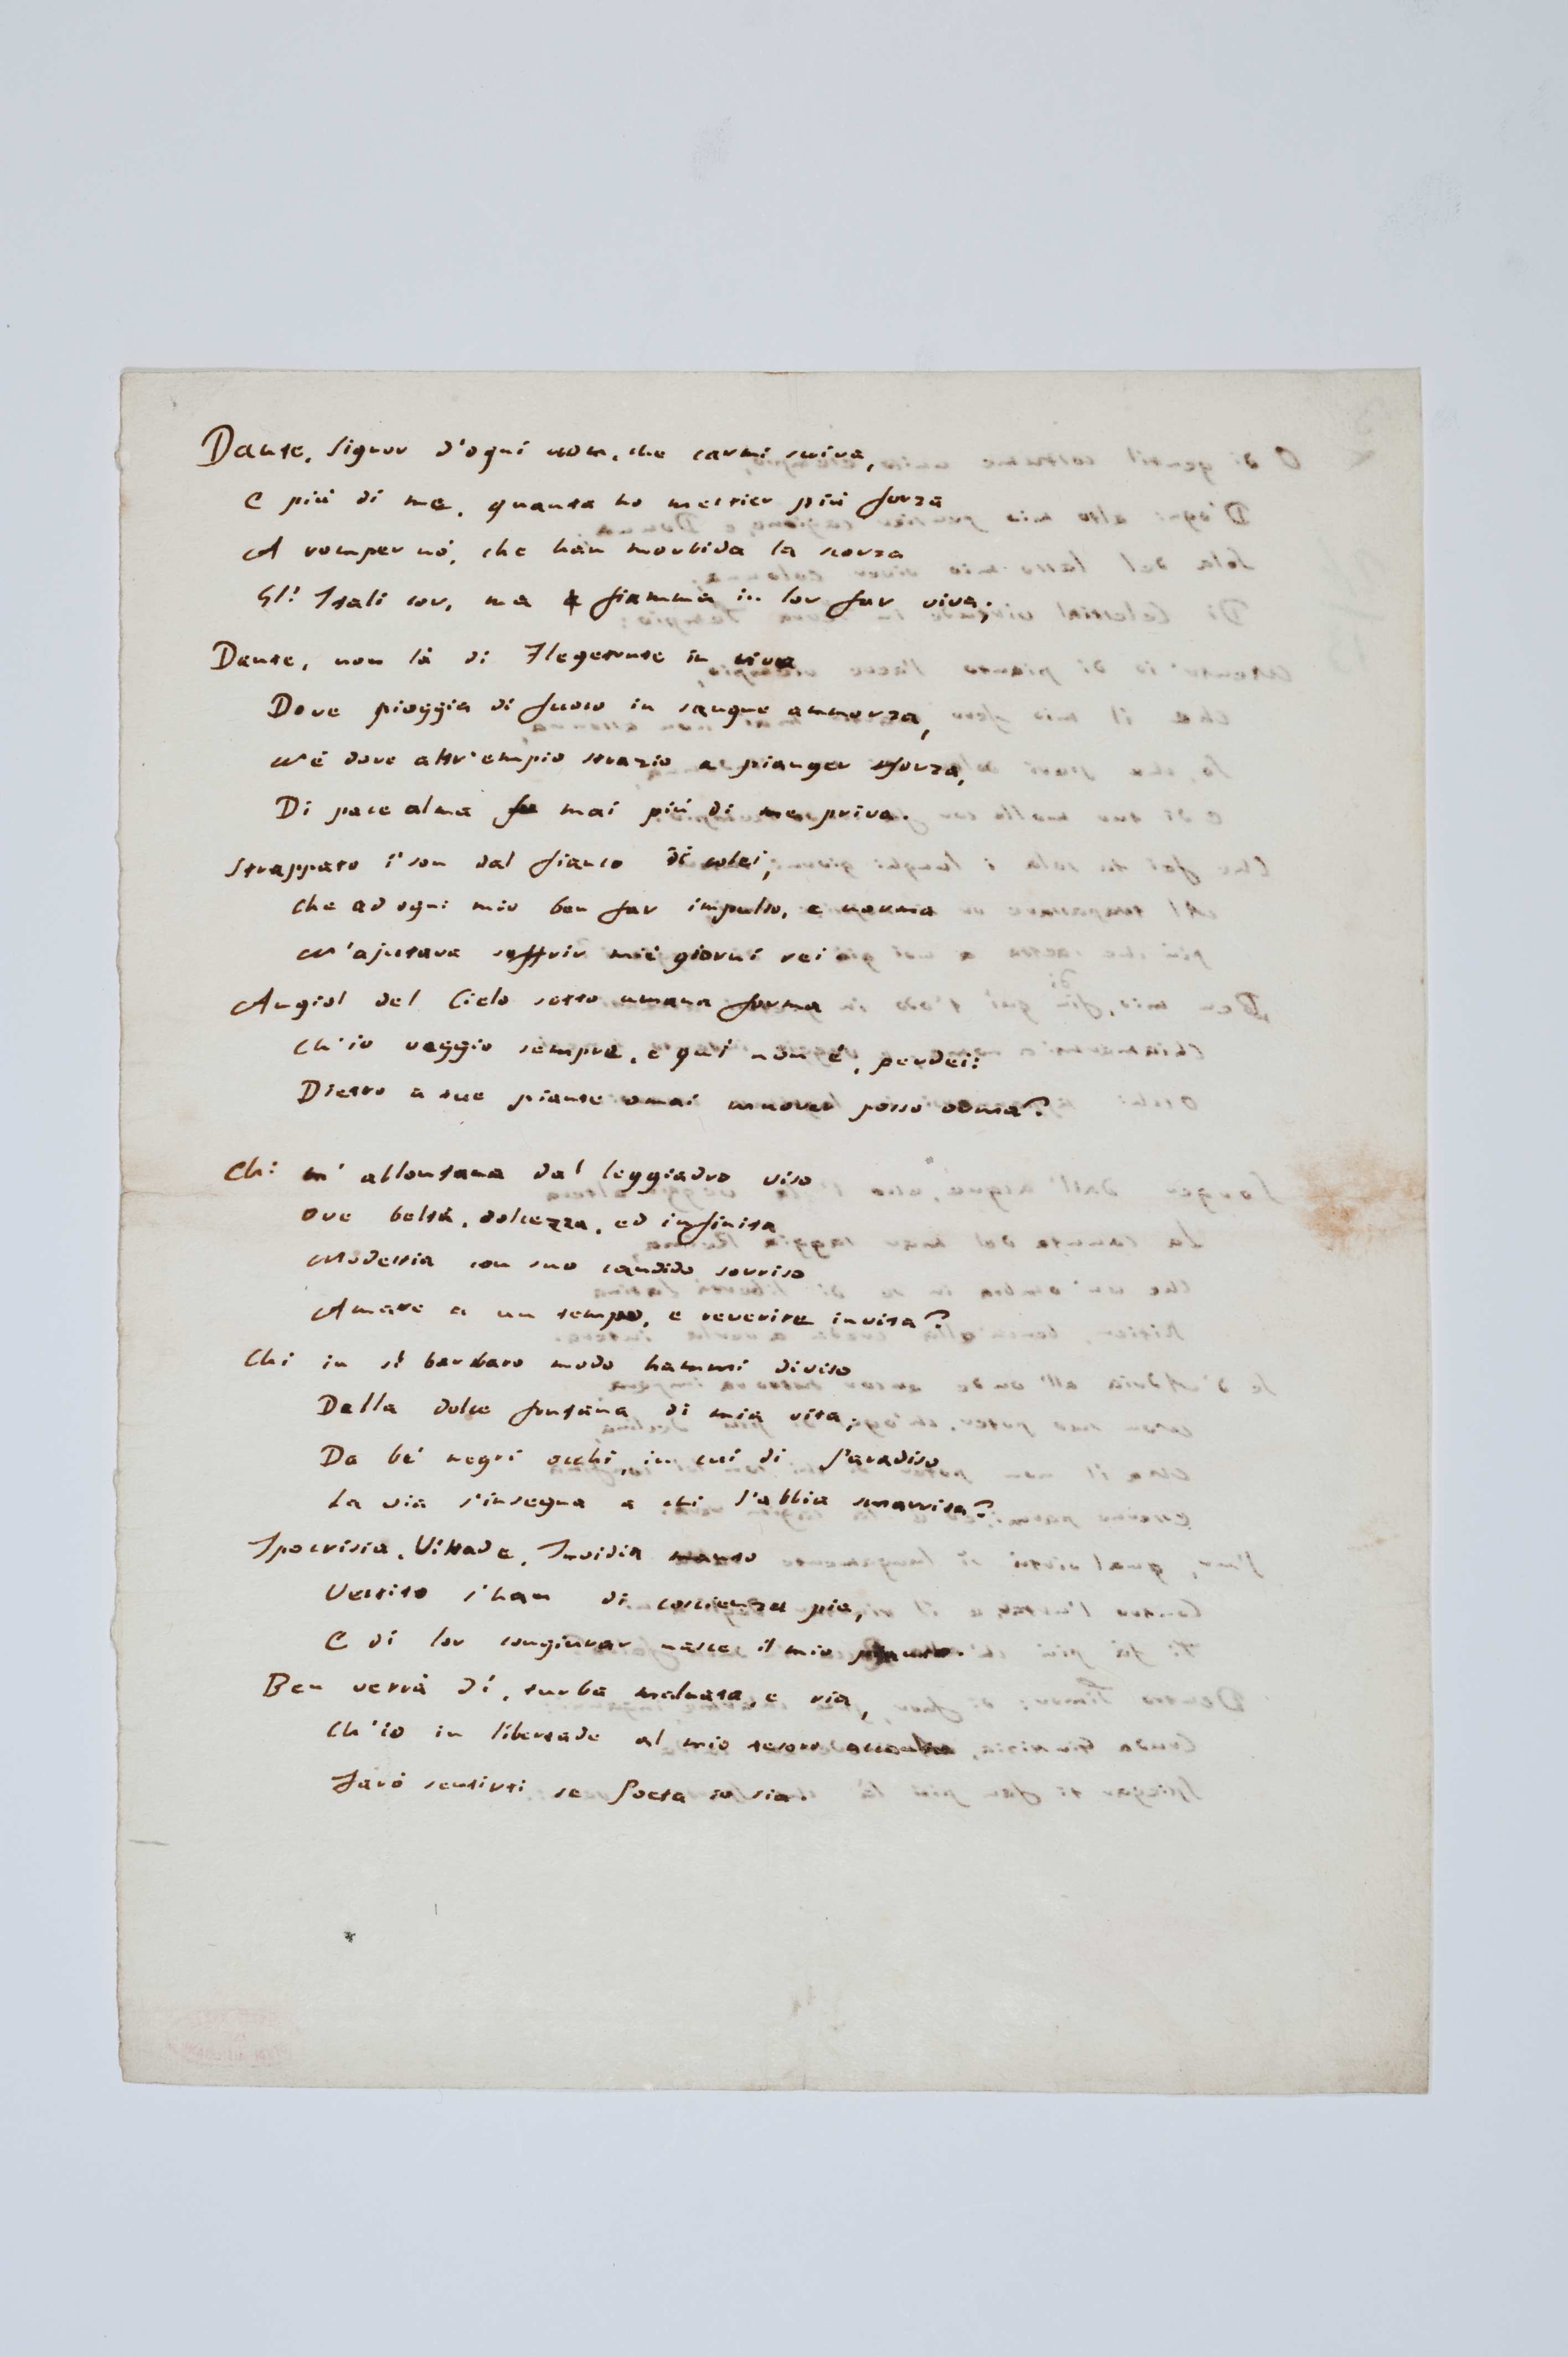 Dante, Signor d'ogni uom, che carmi scriva,
E più di me, quanta ho mestier più forza
A romper nò, che han morbida la scorza
Gl' Itali cor, ma fiamma in lor far viva;
Dante, non là di Flegetonte in riva
Dove pioggia di fuoco in sangue ammorza,
Nè dove altr'empio strazio a pianger sforza,
Di pace alma fu mai più di me priva.
Strappato i' son dal fianco di colei,
Che ad ogni mio ben far impulso, e norma
M'ajutava soffrir miei giorni rei
Angiol del Cielo sotto umana forma
Ch'io veggio sempre, e quì non è, perdei:
Dietro a sue piante omai muover posso orma?
Chi m'allontana dal leggiadro viso
Ove beltà, dolcezza, ed infinita
Modestia con suo candido sorriso
Amare a un tempo, e reverire invita?
Chi in sì barbaro modo hammi diviso
Dalla dolce fontana di mia vita;
Da bei negri occhi, in cui di Paradiso
La via s'insegna a chi l'abbia smarrita?
Ipocrisia, Viltade, Invidia manto
Vestito s'han di coscienza pia,
E di lor congiurar nasce il mio pianto.
Ben verrà dì, turba malnata, e ria,
Ch'io in libertade al mio tesoro accanto
Farò sentirti se Poeta io sia.